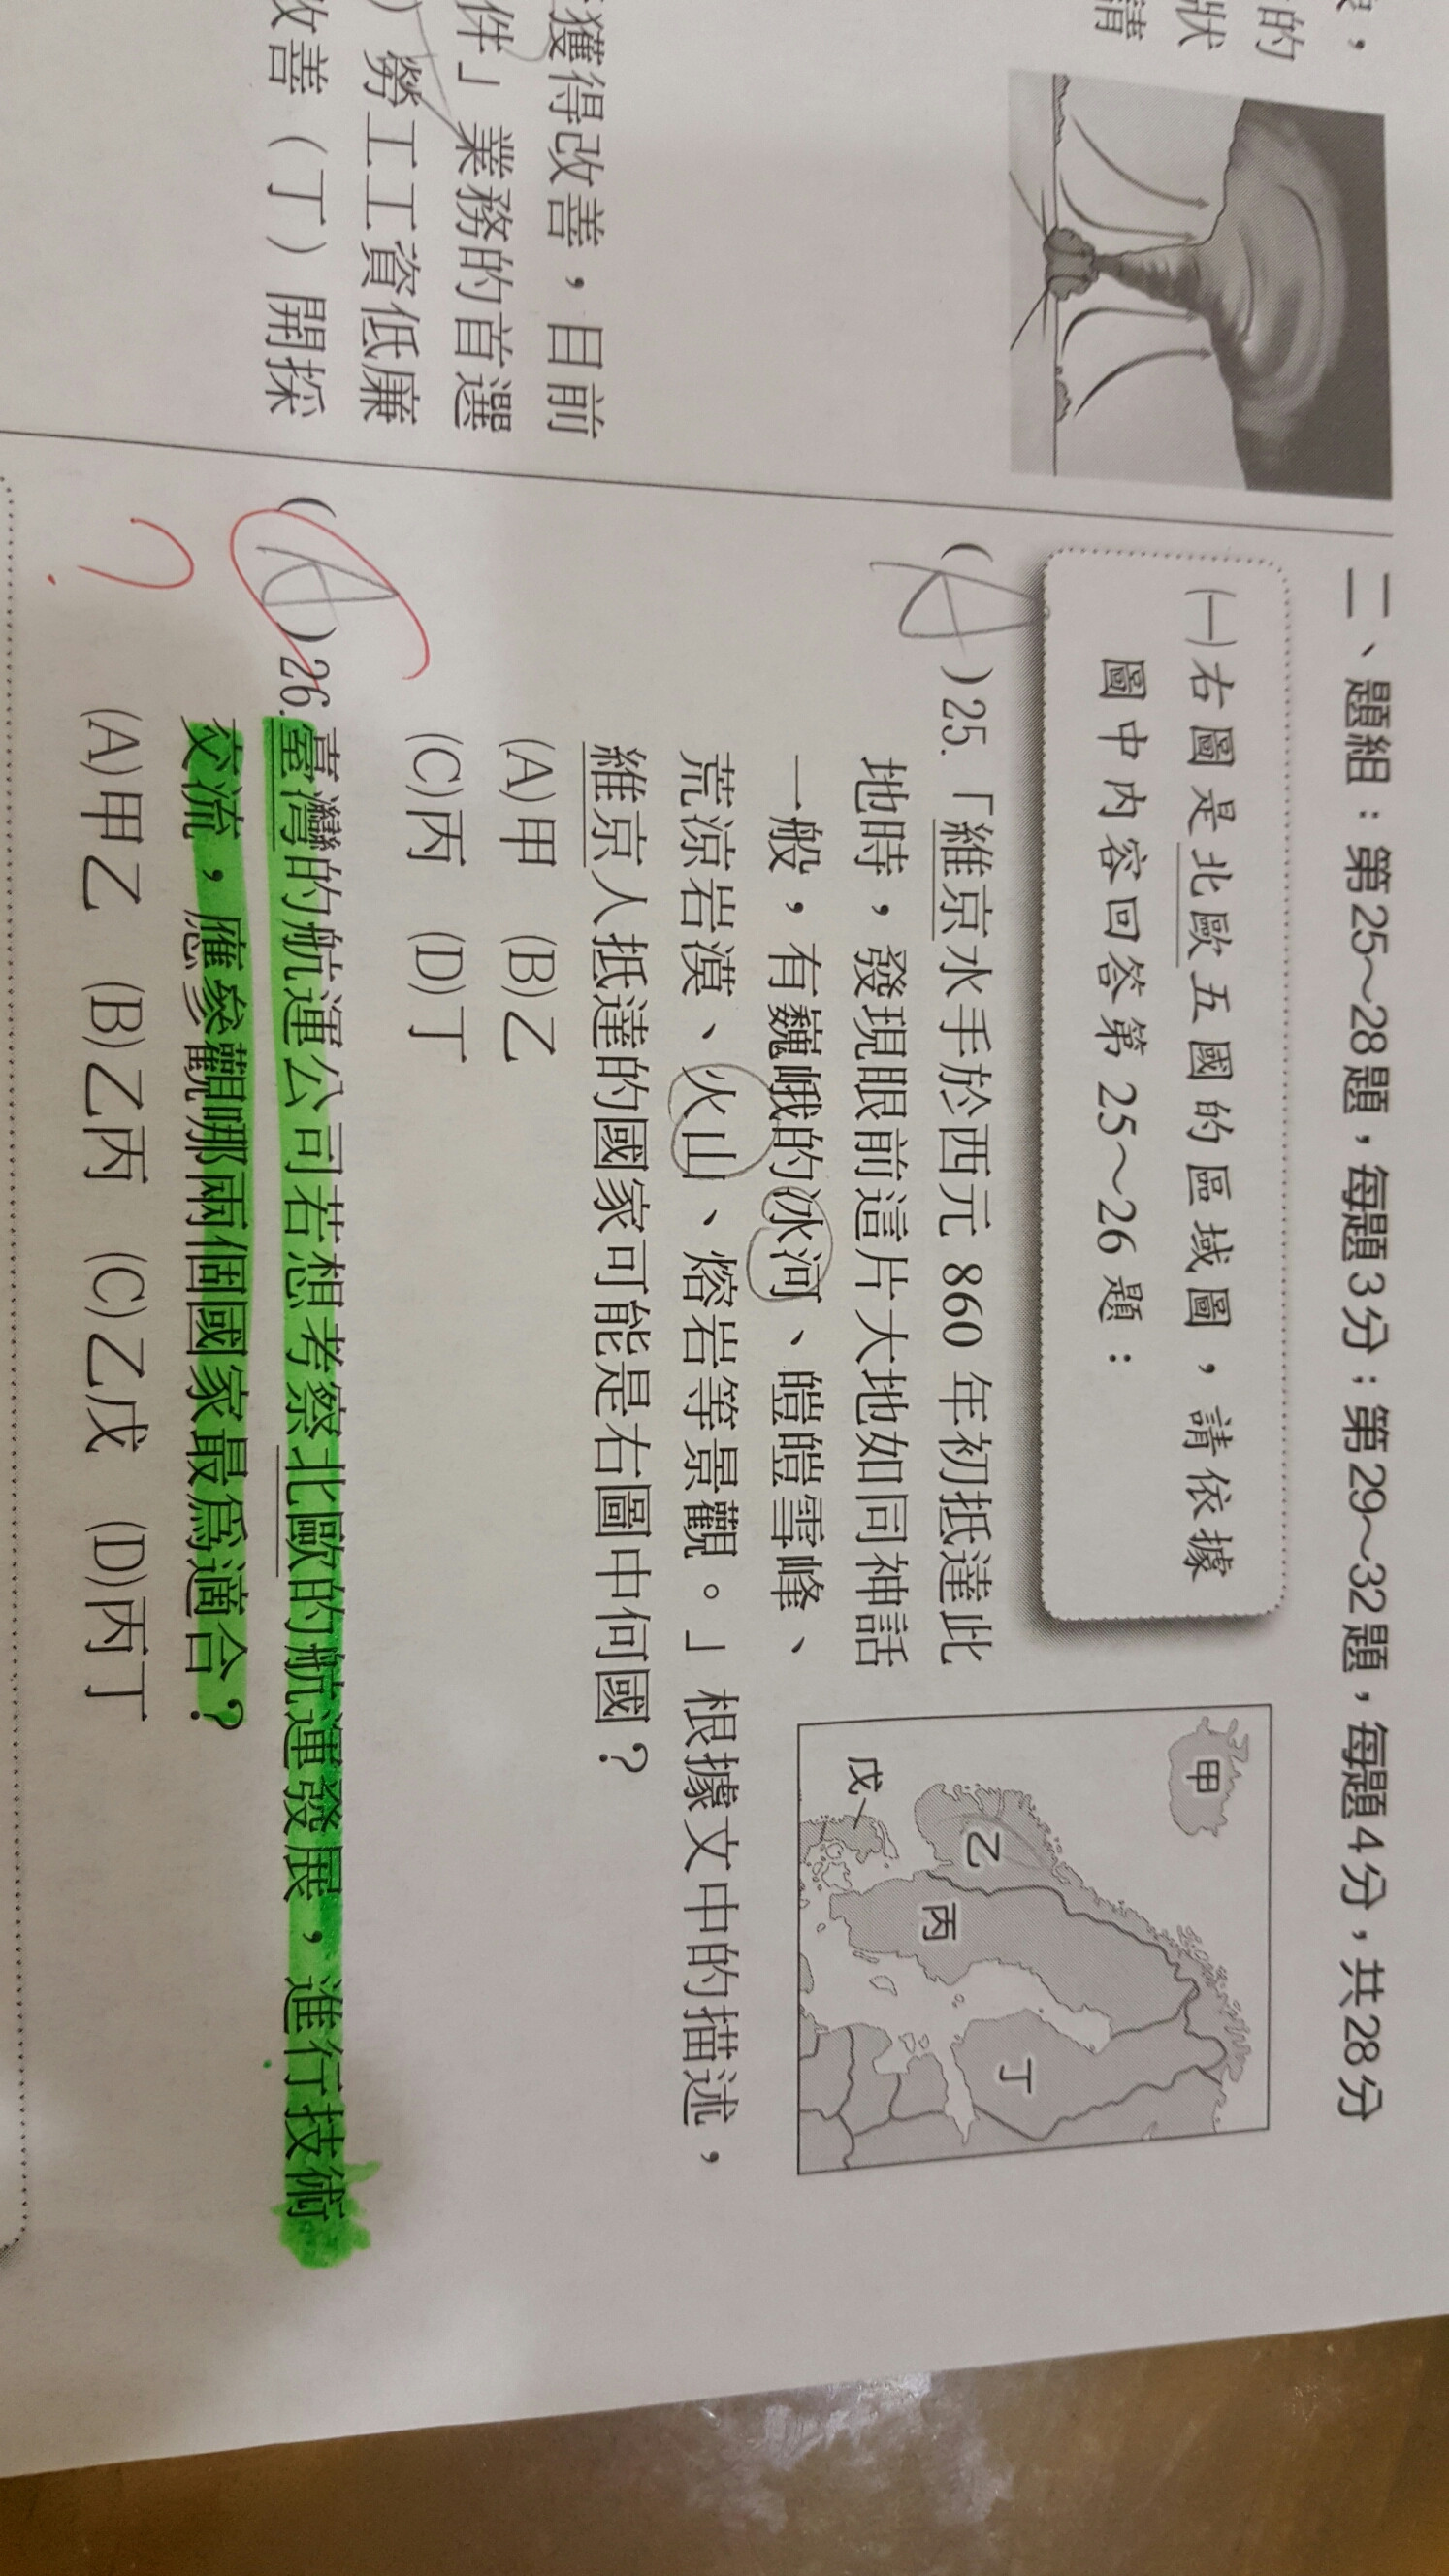 的
狀
請
獲得改善，目前
件」業務的首選
）勞工工資低廉
改善（丁）開採
二、題組：第25～28題，每題3分；第29～32題，每題4分，共28分
(一)右圖是北歐五國的區域圖，請依據
圖中內容回答第25～26題：
(A)25.「維京水手於西元 860 年初抵達此
地時，發現眼前這片大地如同神話
一般，有巍峨的冰河、皚皚雪峰、
荒涼岩漠、火山、熔岩等景觀。」根據文中的描述，
維京人抵達的國家可能是右圖中何國？
(A)甲 (B)乙
(C)丙 (D)丁
甲
乙
丙
丁
戊
(A)26.臺灣的航運公司若想考察北歐的航運發展，進行技術
交流，應參觀哪兩個國家最為適合？
(A)甲乙 (B)乙丙 (C)乙戊 (D)丙丁
?